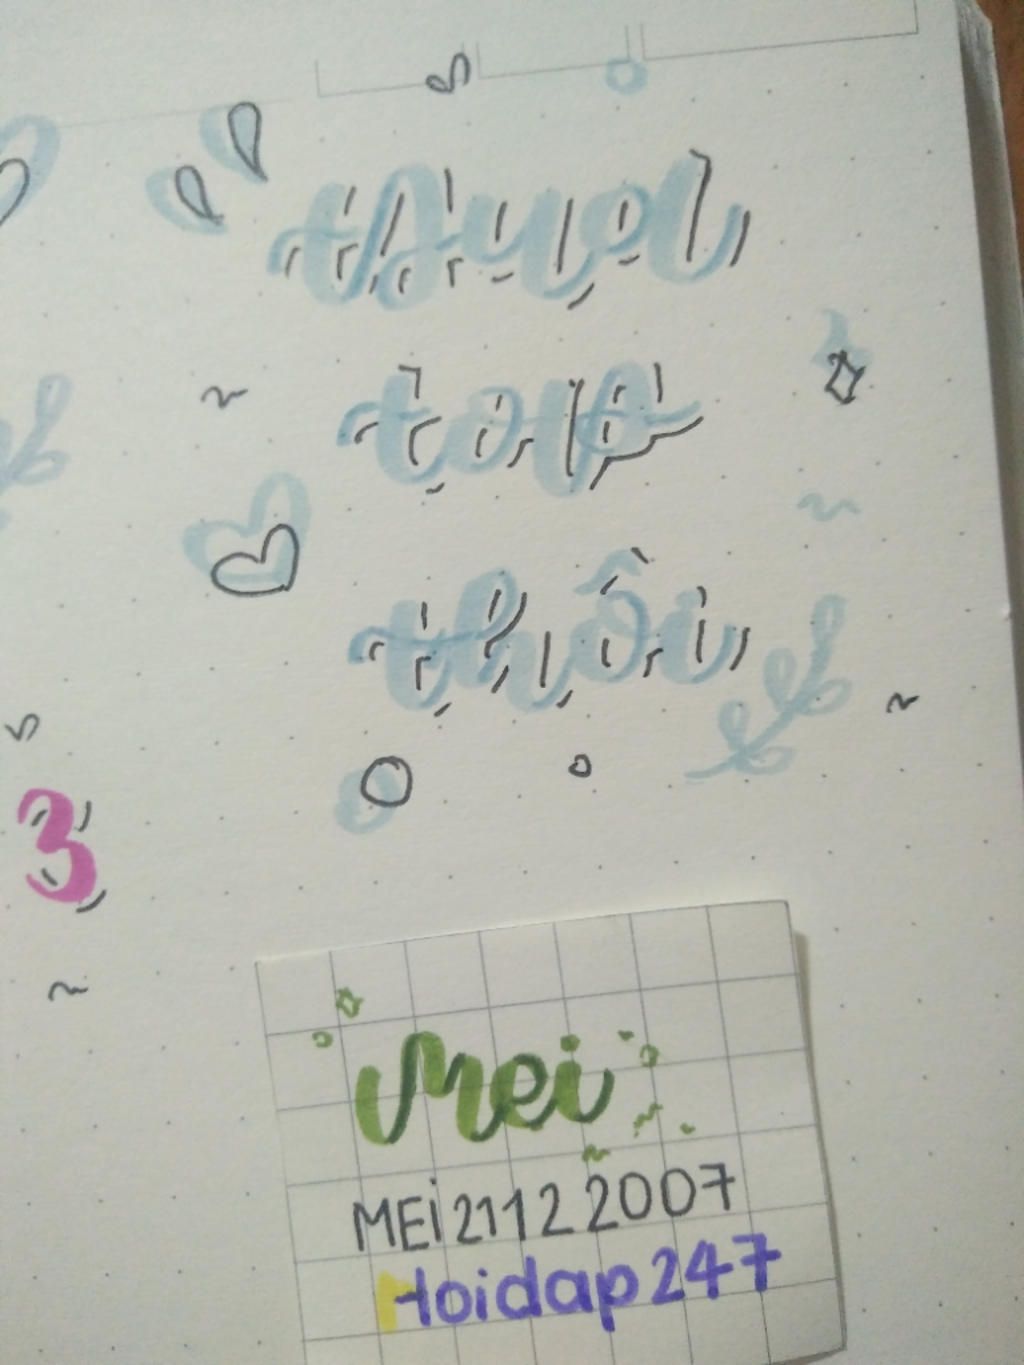 top
thôi
3
Mei
MEi21122007
Hoidap247